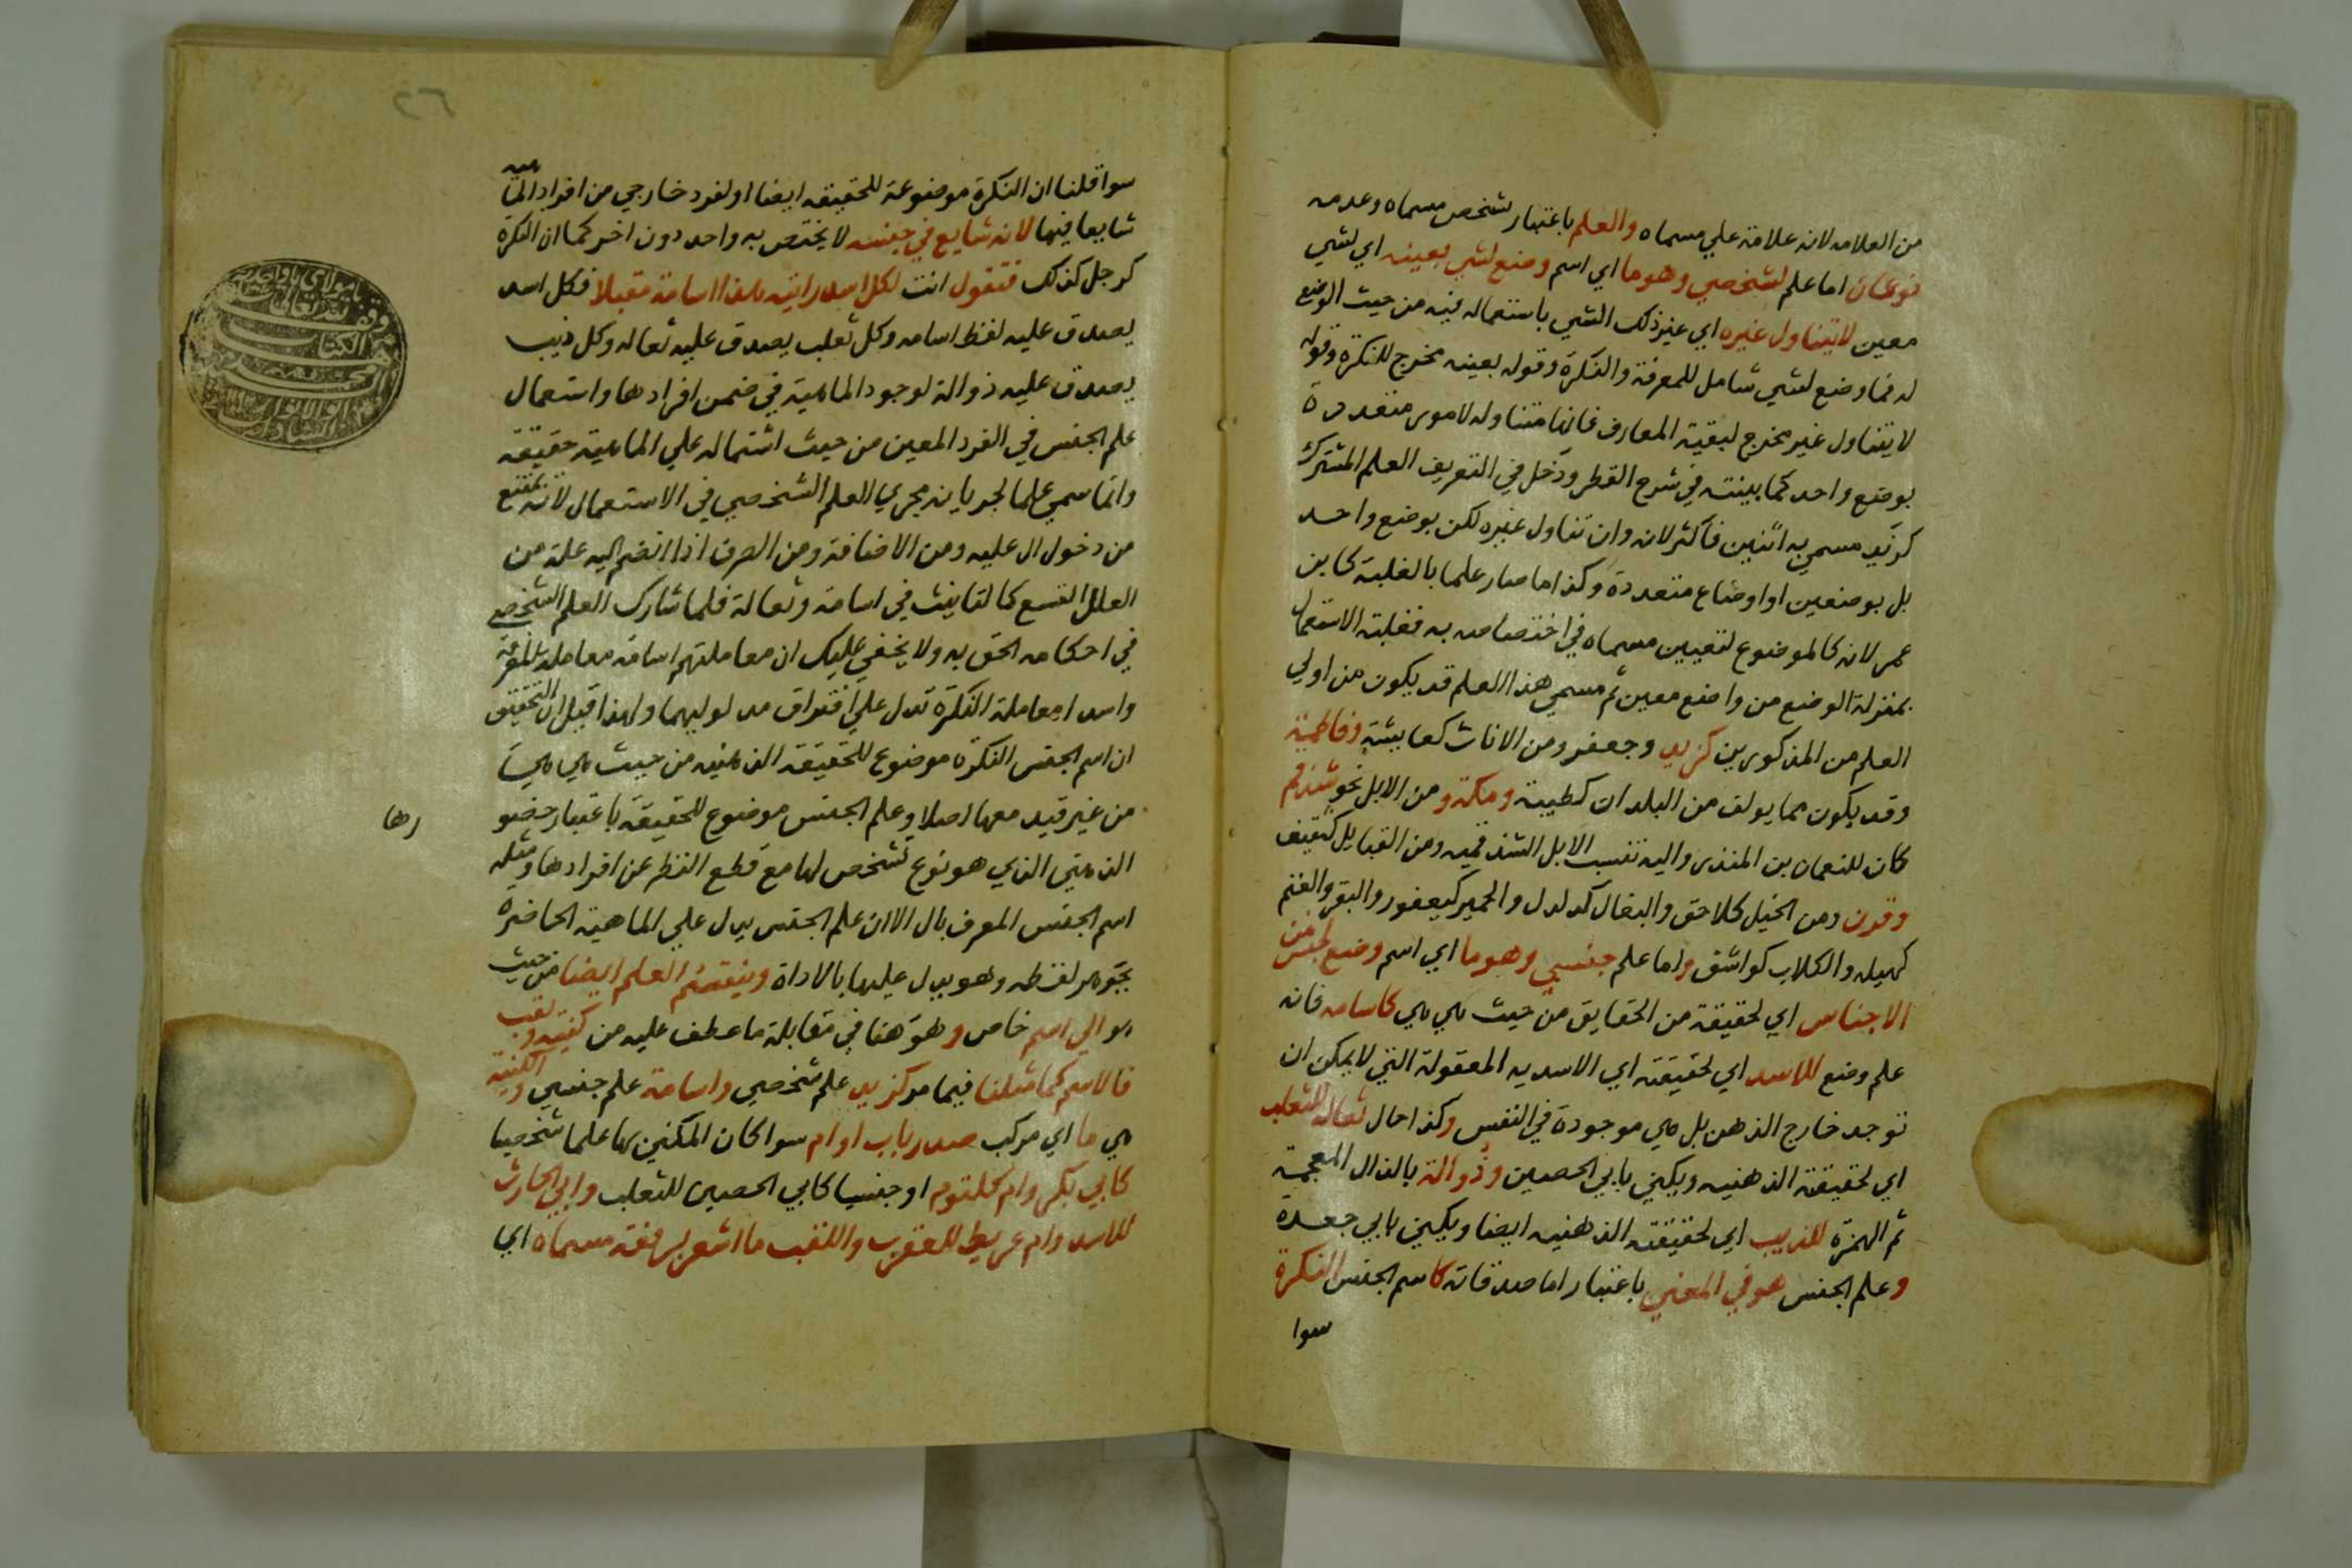 من العلامه لانه علامة علي مسماه والعلم باعتبار تشخص مسماه وعدمه
نوعان اما علم لشخصي وهو ما اي اسم وضع لشي بعينه اي لشي
معين لا يتناول غيره اي غير ذلك الشي باستعماله فيه من حيث الوضع
له فما وضع لشي شامل للمعرفة والنكرة وقوله بعينه مخرج للنكرة وقوله
لا يتناول غير مخرج لبقية المعارف فانها متناوله لامور متعددة
بوضع واحد كما بينته في شرح القطر ودخل في التعريف العلم المشترك
كزيد مسمي به اثنين فاكثر لانه وان تناول غيره لكن بوضع واحد
بل بوضعين او اوضاع متعددة وكذا ما صار علما بالغلبة كابن
عمر لانه كالموضوع لتعيين مسماه في اختصاصه به فغلبة الاستعمال
بمنزلة الوضع من واضع معين ثم مسمي هذا العلم قد يكون من اولي
العلم من المذكورين كزيد وجعفر ومن الاناث كعايشة وفاطمة
وقد يكون مما يولف من البلدان كطيبة ومكة ومن الابل نحو شذقم
كان للنعمان بن المنذر واليه تنسب الابل الشذقميه ومن القبايل كثقيف
وقرن ومن الخيل كلاحق والبغال كدلدل والحمير كيعفور والبقر والغنم
كهيله والكلاب كواشق واما علم جنسي وهو ما اي اسم وضع لجنس من
الاجناس اي لحقيقة من الحقايق من حيث هي هي كاسامه فانه
علم وضع للاسد اي لحقيقته اي الاسديه المعقولة التي لا يمكن ان
توجد خارج الذهن بل هي موجودة في النفس وكذا حال ثعاله للثعلب
اي لحقيقته الذهنيه ويكني بابي الحصين وذوالة بالذال المعجمة
ثم الهمزة للذيب اي لحقيقته الذهنيه ايضا ويكني بابي جعدة
وعلم الجنس هو في المعني باعتبار اما صدقاته كاسم الجنس النكرة
سوا
٢٦
سوا قلنا ان النكرة موضوعة للحقيقه ايضا او لفرد خارجي من افراد الماهيه
شايعا فيها لانه شايع في جنسه لا يختص به واحد دون اخر كما ان النكرة
كرجل كذلك فتقول انت لكل اسد رايته هذا اسامة مقبلا فكل اسد
يصدق عليه لفظ اسامه وكل ثعلب يصدق عليه ثعاله وكل ذيب
يصدق عليه ذوالة لوجود الماهية في ضمن افرادها واستعمال
علم الجنس في الفرد المعين من حيث اشتماله علي الماهية حقيقة
وانما سمي علما لجريانه مجري العلم الشخصي في الاستعمال لانه يمتنع
من دخول ال عليه ومن الاضافة ومن الصرف اذا انضم اليه علة من
العلل التسع كالتانيث في اسامة وثعالة فلما شارك العلم الشخصي
في احكامه الحق به ولا يخفي عليك ان معاملتهم اسامة معاملة المعرفة
واسد امعاملة النكرة تدل علي افتراق مدلوليهما ولهذا قيل ان التحقيق
ان اسم الجنس النكرة موضوع للحقيقة الذهنيه من حيث هي هي
من غير قيد معها اصلا وعلم الجنس موضوع للحقيقة باعتبار حضو
رها
الذهني الذي هو نوع تشخص لها مع قطع النظر عن افرادها ومثله
اسم الجنس المعرف بال الا ان علم الجنس يدل علي الماهية الحاضرة
بجوهر لفظه وهو يدل عليها بالاداة وينقسم العلم ايضا من حيث
هو الي اسم خاص وهو هنا في مقابلة ما عطف عليه من كنيه ولقب
فالاسم كما مثلنا فيما مر كزيد علم شخصي واسامة علم جنسي والكنية
هي ما اي مركب صدر باب او ام سوا كان المكني بها علما شخصيا
كابي بكر وام كلثوم او جنسيا كابي الحصين للثعلب وابي الحارث
للاسد وام عريط للعقرب واللقب ما اشعر برفعة مسماه اي